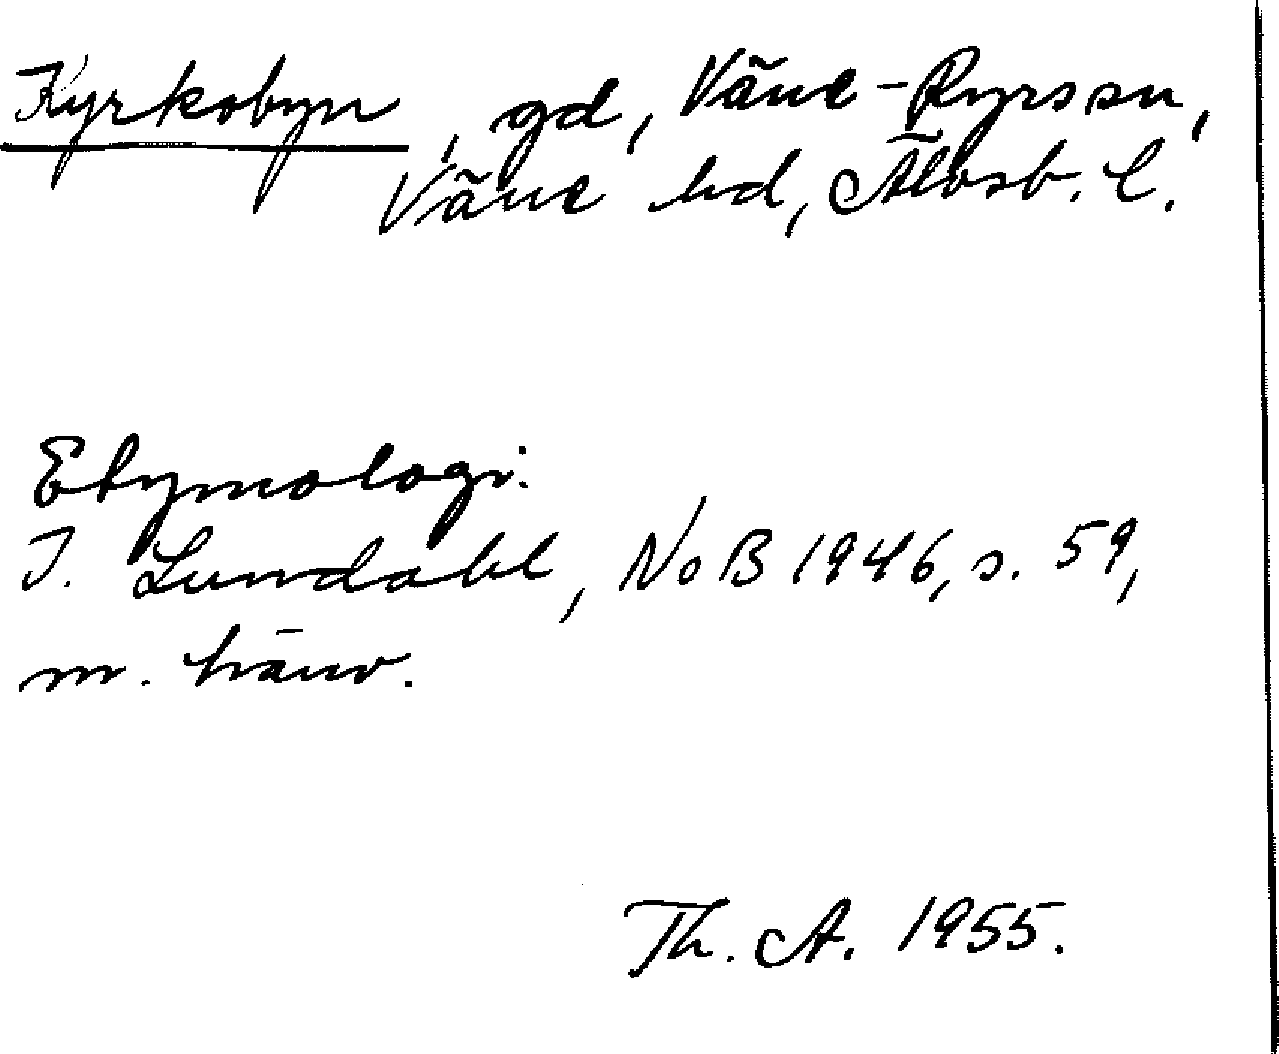 Kyrkobyn, gd, Väne-Ryrs sn,
Väne hd, Älvsb. l.
Etymologi:
I. Lundahl, NoB 1946, s. 59,
m. hänv.
Th. A. 1955.